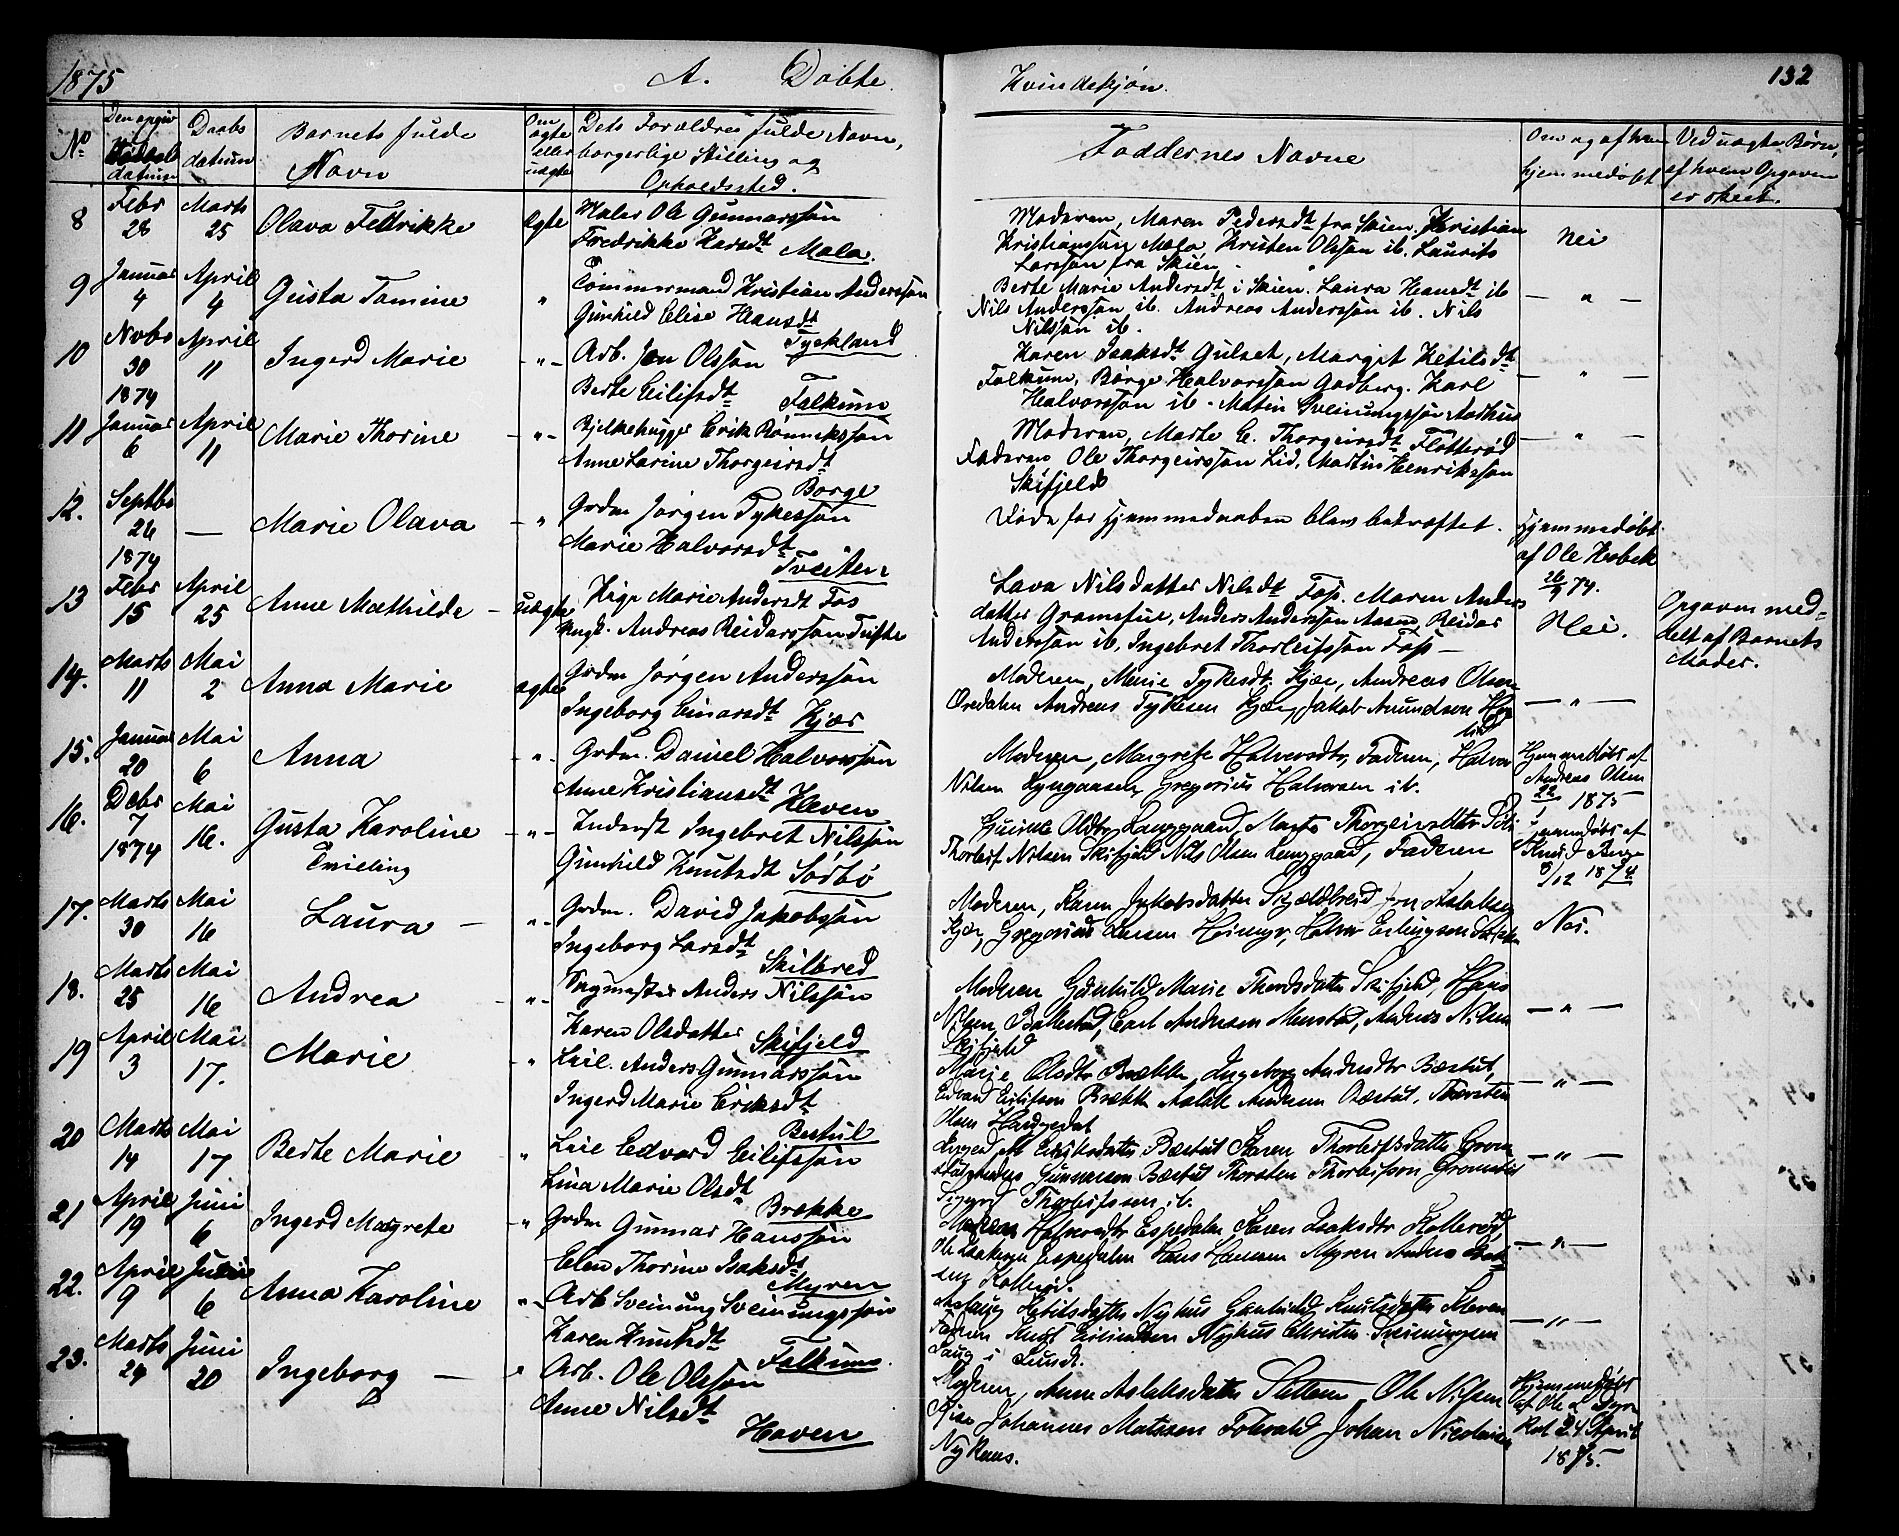 1875 A. Døbte. Kvindekjøn. 132
No
Den opgiv
Fødsels
datum
Daabs
datum
Barnets fulde
Navn
Om
ægte
eller
uægte
Dets Forældres fulde Navn,
borgerlige Stilling og
Opholdssted.
Faddernes Navne
Om og af hvem
hjemmedøbt
Ved uægte Børn,
af hvem Opgaven
er skeet.
8 Febr 28 Marts 25 Olava Fedrikke ægte Maler Ole Gunnarssøn
Fredrikke Larsdt Mæla.
Moderen, Maren Pedersdt fra Skien. Kristian
Kristianssøn Mæla, Kristen Olssøn ib. Laurits
Larssøn fra Skien
Nei
9 Januar 4 April 4 Gusta Tomine " Tømmermand Kristian Anderssøn
Gunhild Elise Hansdt
Tyskland
Berte Marie Andersdt i Skien. Laura Hansdt ib
Nils Anderssøn ib. Andreas Anderssøn ib. Nils
Nilssøn ib.
— " —
10 Novbr 30 1874 April 11 Ingerd Marie - " - Arb. Jon Olssøn
Berte Eilifsdt Falkum
Karen Isaksdt Gulset, Margit Ketilsdt
Falkum, Børge Halvorssøn Gadberg. Karl
Halvorssøn ib. Matin Sveinungssøn Aarhus
— " —
11 Januar 6 April 11 Marie Thorine - " - Bjelkehugger Erik
Anne Larine Thorgeirsdt
Borge
Moderen, Marte E. Thorgeirsdt Fløtterød
Faderen Ole Thorgeirssøn Lid, Martin Henrikssøn
Skifjeld
— " —
12. Septbr 26 1874 — Marie Olava - " Grdm Jørgen Tykessøn
Marie Halvorsdt
Tveiten
hjemmedaaben blev bekræftet.
Hjemmedøbt
af Ole
74.
13 Febr 15 April 25 Anne Mathilde - uægte Pige Marie Andersdt Fos
Ungk. Andreas Reidarssøn Tufte
Lava Nilsdatter Nilsdt Fos. Maren Anders
datter Gromstul, Anders Anderssøn Aasen, Reidar
Anderssøn ib, Ingebret Thorleifssøn Fos —
Nei.
Opgaven med=
delt af Barnets
Moder.
14. Marts 11 Mai 2 Anna Marie ægte Grdm Jørgen Anderssøn
Ingeborg Einarsdt Kjær
Moderen, Marie Tykesdt. Kjær, Andreas Olsen
Andreas Tykesen Kjær, Jakob Amundsen
— " —
15. Januar 20 Mai 6 Anna - " - Grdm. Daniel Halvorssøn
Anne Kristiansdt Haven
Moderen, Margrete Halvorsdtr, Faderen, Halvor
Nilsen Lyngaasen, Gregorius Halvorsen ib.
Hjemmedøbt af
Andreas Olsen
1875
16. Debr 7 1874 Mai 16. Gusta Karoline
Tvieling
- " - Inderst Ingebret Nilssøn
Gunhild Knutsdt Sørbø
Gurine Olsdtr Langgaard, Marte Thorgeirsdatter
Thorleif Nilsen Skifjeld Nils Olsen Langgaard, Faderen
Hjemmedøbt af
Knud Borge
8/12 1874
17. Marts 30 Mai 16 Laura — " - Grdm. David Jakobssøn
Ingeborg Larsdt
Skilbred
Moderen, Karen Jakobsdatter Skjeldbred, Aslak
Kjær, Gregorius Larsen Heimyr, Halvor Erlingsen
Nei.
18. Marts 25 Mai 16 Andrea - " - Bygmester Anders Nilssøn
Karen Olsdatter Skifjeld
Moderen Gunhild Marie Thordsdatter Skifjeld, Hans
Nilsen Ballestad, Carl Andersen Menstad, Anders Nilsen
Skifjeld
— " —
19 April 3 Mai 17. Marie - " Leil. Anders Gunnarssøn
Ingerd Marie Eriksdt
Bestul
Marie Olsdtr Brække, Ingeborg Andersdtr Bæstul,
Edvard Eilifsen Brække Aslak Andersen Bæstul, Thorsten
Olsen
— " —
20 Marts 14 Mai 17 Berte Marie " Leil Edvard Eilifssøn
Lina Marie Olsdt
Brække
Ingerd M Eriksdatter Bæstul Karen Thorleifsdatter Grom
stul, Anders Gunnarsen Bæstul Thorsten Thorleifsen Gromstul
Sigurd Thorleifssen ib.
— " —
21 April 19 Juni 6 Ingerd Margrete - " Grdm Gunnar Hanssøn
Elen Thorine Isaksdt
Myren
Maren Halvorsdtr Espedalen, Karen Isaksdtr Kollerød
Ole Isaksen Espedalen Hans Hansen Myren Anders Isak=
sen Kollerød.
— " —
22. April 9 Juni 6 Anna Karoline " - Arb Sveinung Sveinungssøn
Karen Knutsdt
Falkum.
Aslaug Ketilsdatter Nyhus Gunhild Knutsdatter Haven
Faderen Knut Nyhus Christen Sveinungsen
— " —
23. Marts 24 Juni 20 Ingeborg — " Arb. Ole Olssøn
Anne Nilsdt
Haven
Moderen, Anne Aslaksdatter Ole Nilsen
Rise Johannes Matssen Follevald Johan Nicolaisen
Nyhuus.
Hjemmedøbt
af Ole
24 April
1875.